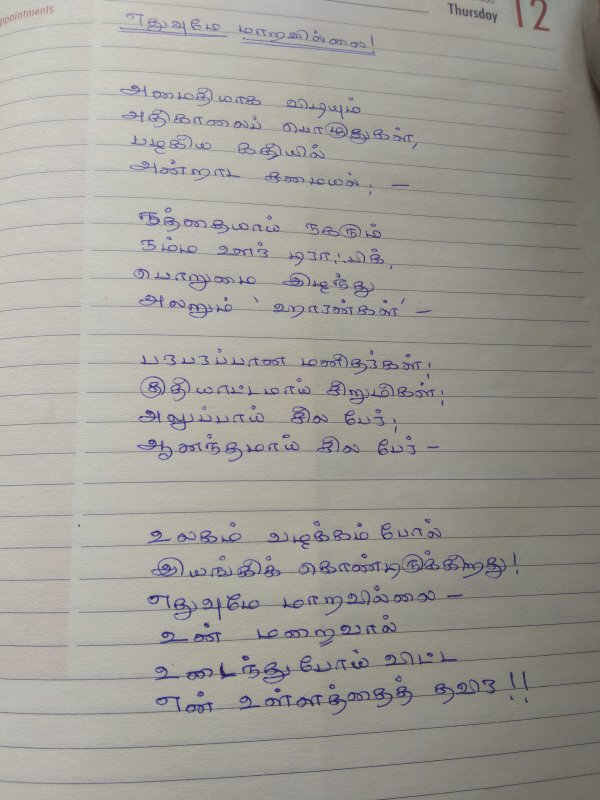 ppointments
Thursday 12
எதுவுமே மாறவில்லை!
அமைதியாக விடியும்
அதிகாலைப் பொழுதுகள்,
பழகிய கதியில்
அன்றாட சமையல்; –
நத்தையாய் நகரும்
நம்ம ஊர் டிராஃபிக்,
பொறுமை இழந்து
அலறும் 'ஹாரன்கள்' –
பரபரப்பான மனிதர்கள்;
குதியாட்டமாய் சிறுமிகள்;
அலுப்பாய் சில பேர்;
ஆனந்தமாய் சில பேர் –
உலகம் வழக்கம் போல்
இயங்கிக் கொண்டிருக்கிறது!
எதுவுமே மாறவில்லை –
உன் மறைவால்
உடைந்து போய் விட்ட
என் உள்ளத்தைத் தவிர!!